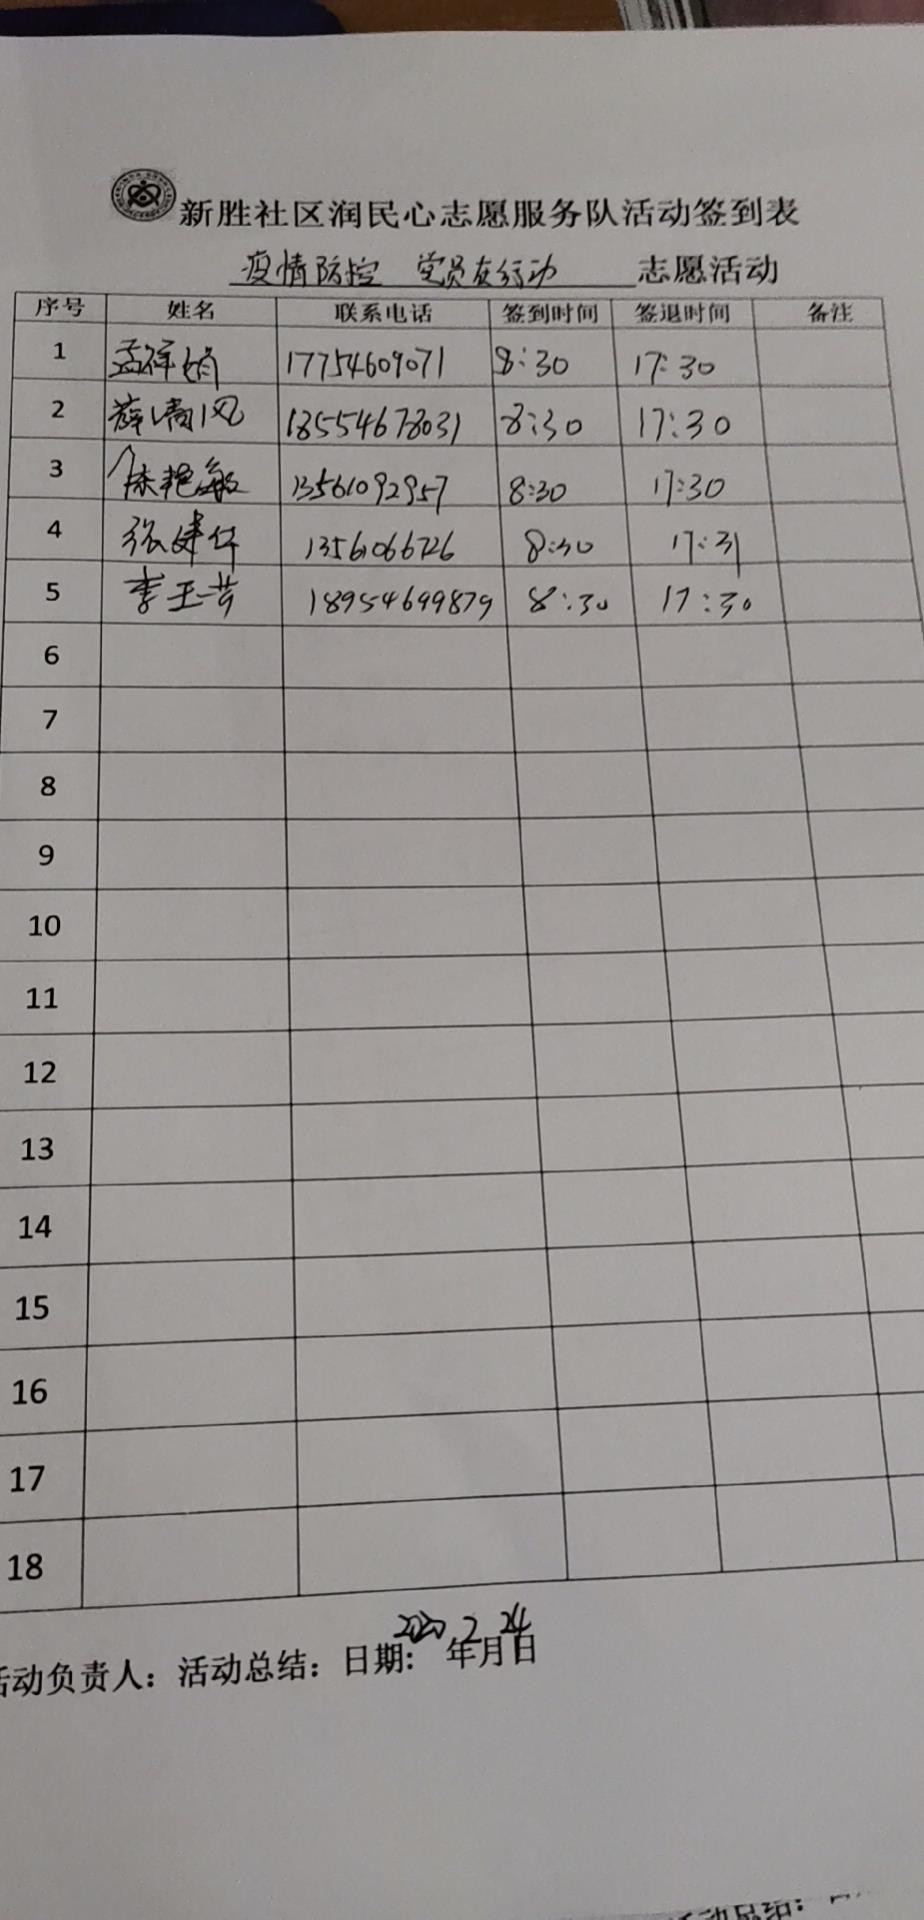 新胜社区润民心志愿服务队活动签到表
疫情防控 党员在行动 志愿活动
序号 姓名 联系电话 签到时间 签退时间 备注
1 孟祥娟 17754609071 8:30 17:30
2 薛清风 18554678031 8:30 17:30
3 陈艳敏 13561092957 8:30 17:30
4 张建华 1356066726 8:30 17:31
5 李玉芸 18954699879 8:30 17:30
6
7
8
9
10
11
12
13
14
15
16
17
18
活动负责人：活动总结：日期：2020年2月24日
活动总结：